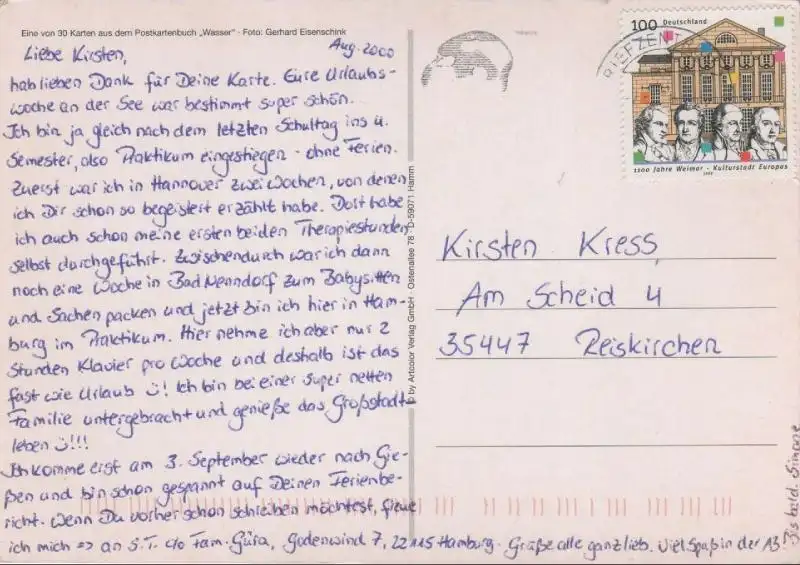 Eine von 30 Karten aus dem Postkartenbuch „Wasser" · Foto: Gerhard Eisenschink
Aug. 2000
Liebe Kirsten,
hab lieben Dank für Deine Karte. Eure Urlaubs-
woche an der See war bestimmt super schön.
Ich bin ja gleich nach dem letzten Schultag ins 4.
Semester, also Praktikum eingestiegen - ohne Ferien.
Zuerst war ich in Hannover zwei Wochen, von denen
ich Dir schon so begeistert erzählt habe. Dort habe
ich auch schon meine ersten beiden Therapiestunden
selbst durchgeführt. Zwischendurch war ich dann
noch eine Woche in Bad Nenndorf zum Babysitten
und Sachen packen und jetzt bin ich hier in Ham-
burg im Praktikum. Hier nehme ich aber nur 2
Stunden Klavier pro Woche und deshalb ist das
fast wie Urlaub ☺! Ich bin bei einer super netten
Familie untergebracht und genieße das Großstadt-
leben ☺!!!
Ich komme erst am 3. September wieder nach Gie-
ßen und bin schon gespannt auf Deinen Ferienbe-
richt. Wenn Du vorher schon schreiben möchtest, freue
ich mich => an S.T. c/o Fam. Güra, Godenwind 7, 22115 Hamburg. Grüße alle ganz lieb. Viel Spaß in der A3
Bis bald. Simone
© by Artcolor Verlag GmbH · Ostenallee 78 · D-59071 Hamm
BRIEFZENT
100 Deutschland
1100 Jahre Weimar - Kulturstadt Europas
1999
Kirsten Kress
Am Scheid 4
35447 Reiskirchen